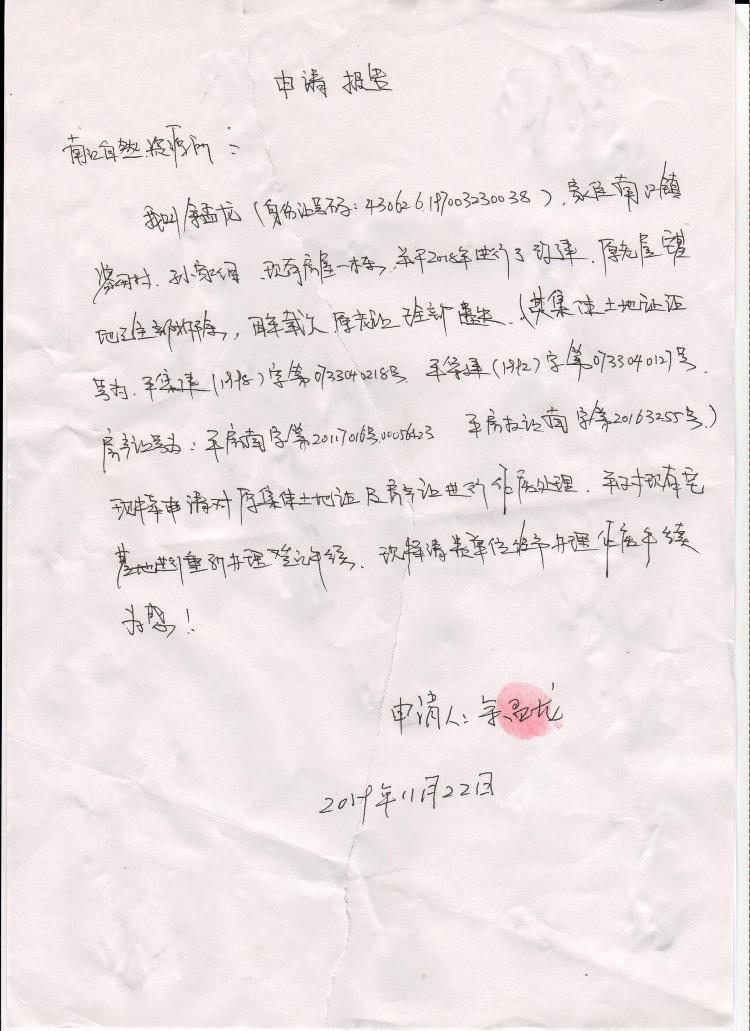 申请报告
南江自然资源所：
我叫余孟龙（身份证号码：430626197003230038），家住南江镇
村、孙家组，现有房屋一栋，并于2018年进行了改建，原老屋
地已全部拆除，因年载久原老证全部遗失，（其集体土地证证
号为：平集建（1998）字第0733040218号，平集建（1992）字第0733040127号，
房产证号为：平房南字第20117016号00056423 平房权证南字第20163255号）
现特申请对原集体土地证及房产证进行作废处理，并对现有宅
基地进行重新办理登记手续，现特请贵单位给予办理作废手续
为感！
申请人：余孟龙
2019年11月22日